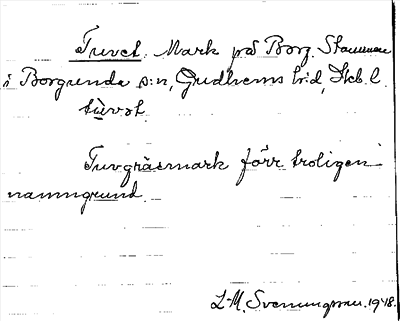 Tuvet. Mark på Borg. Stommen
i Borgunda s:n, Gudhems h:d, Skb. l.
tùvət.
Tuvgräsmark förr troligen
namngrund.
L-M. Svenungsson. 1948.